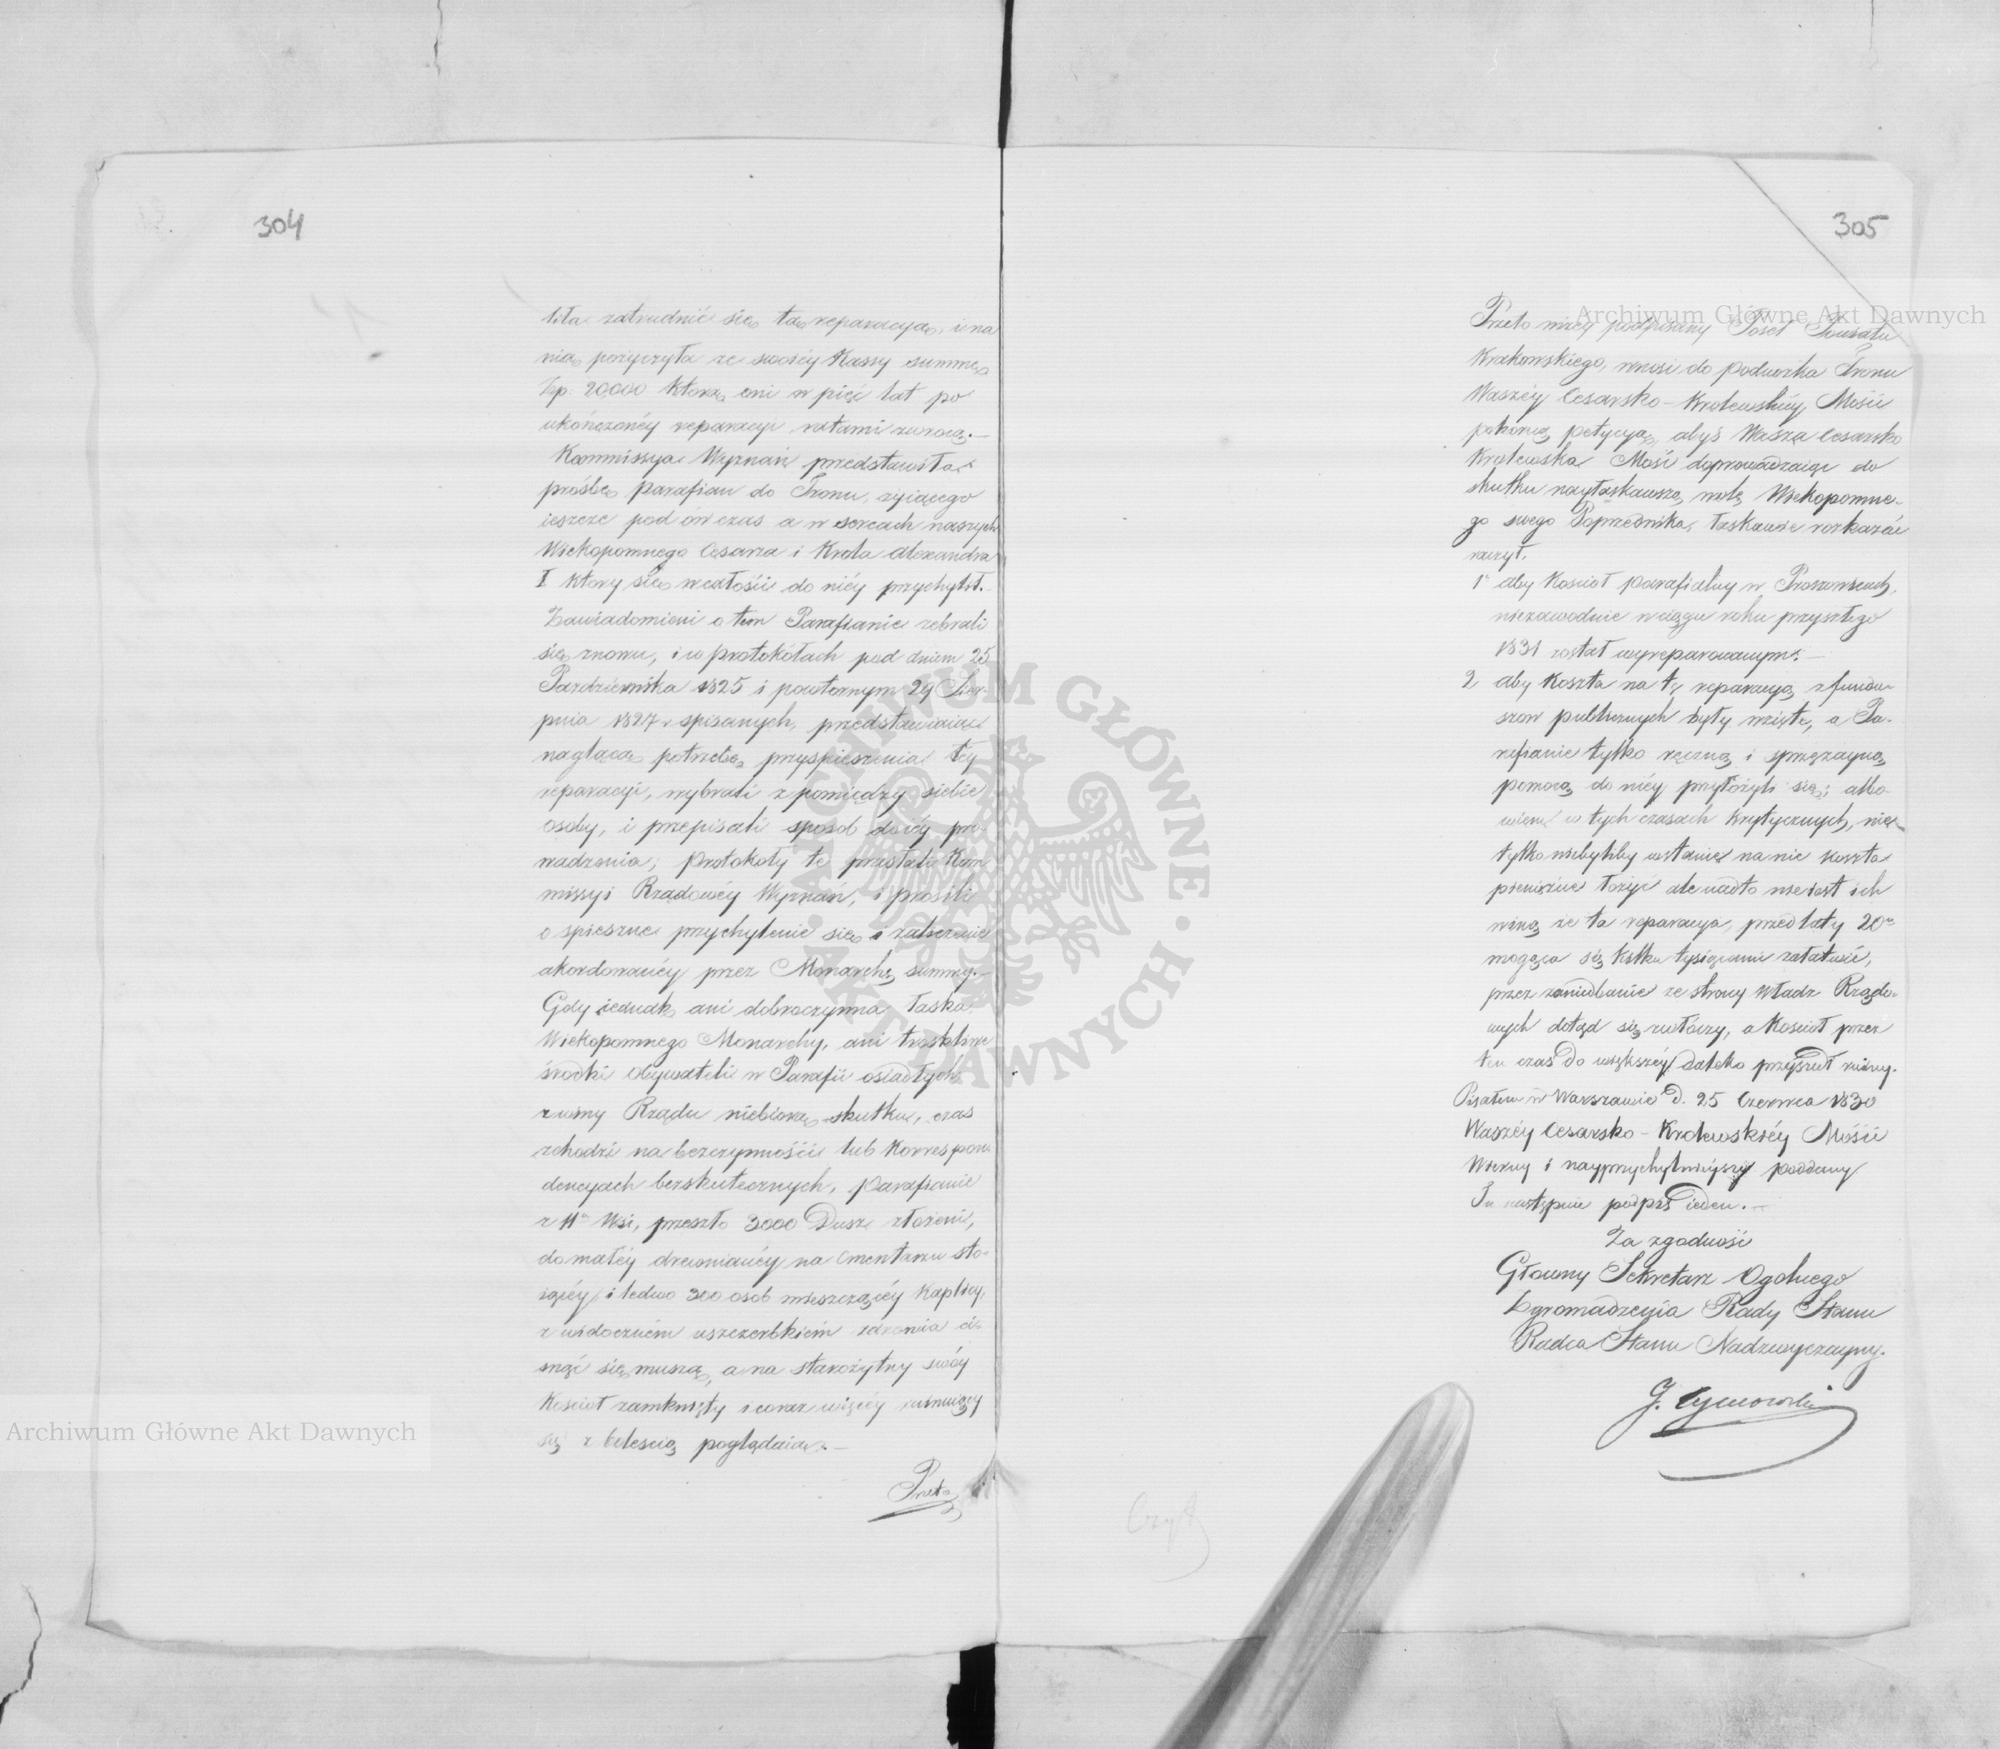 304
-iła zatrudnić się tą reparacyą, i na
nią pożyczyła ze swoiéy Kassy summę
Złp. 20,000 którą oni w pięć lat po
ukończonéy reparacyi ratami zwrócą.—
Kommissya Wyznań przedstawiła
prośbę parafian do Tronu, żyiącego
ieszcze pod ów czas a w sercach naszych
Wiekopomnego Cesarza i Krola Alexandra
I który się w całości do niéy przychylił.
Zawiadomieni o tem Parafianie zebrali
się znowu, i w protokółach pod dniem 25
Pazdziernika 1825 i powtornym 29 Sier-
pnia 1827 r spisanych, przedstawiaiąc
naglącą potrzebę przyspieszenia téy
reparacyi, wybrali z pomiędzy siebie
osoby, i przepisali sposob do iéy pro-
wadzenia; protokoły te przesłali Kom
missyi Rządowéy Wyznań, i prosili
o spieszne przychylenie się i
akordowanéy przez Monarchę summy.—
Gdy iednak ani dobroczynna łaska
Wiekopomnego Monarchy, ani troskliwe
środki obywateli w Parafii osiadłych
z winy Rządu niebiorą skutku, czas
schodzi na bezczynności lub korrespon
dencyach bezskutecznych, parafianie
z 11u Wsi, przeszło 3000 Dusz złożeni,
do małéy drewnianéy na Cmentarzu sto-
iącéy i ledwo 300 osób mieszczącéy kaplicy,
z widoczném uszczerbkiem zdrowia ci-
snąć się muszą, a na starożytny swóy
Kościoł zamknięty i coraz więcéy ruinuiący
się z boleścią poglądaią.—
Przeto
305
Przeto niżéy podpisany Poseł Powiatu
Krakowskiego, wnosi do podnożka Tronu
Waszéy Cesarsko-Krolewskiéy Mości
pokorną petycyą, abyś Wasza Cesarsko
Krolewska Mość doprowadzaiąc do
skutku nayłaskawszą wolę Wiekopomne-
go swego Poprzednika, łaskawie rozkazać
raczył.
1° aby Kościoł parafialny w Proszowicach,
niezawodnie w ciągu roku przyszłego
1831 został wyreparowanym.—
2 aby koszta na tę reparacyą z fundu-
szow publicznych były wzięte, a Pa-
rafianie tylko ręczną i sprzężayną
pomocą do niéy przyłożyli się; albo-
wiem w tych czasach krytycznych, nie-
tylko niebyliby w stanie na nie koszta
pieniężne łożyć ale nadto nie iest ich
winą że ta reparacya, przed laty 20u
mogąca się kilku tysiącami załatwić,
przez zaniedbanie ze strony Władz Rządo-
wych dotąd się zwlóczy, a Kościoł przez
ten czas do większéy daleko przyszedł ruiny.
Pisałem w Warszawie D. 25 Czerwca 1830
Waszéy Cesarsko-Krolewskiéy Mości
Wierny i nayprzychylnieyszy poddany
Tu następuie podpis ieden.—
Za zgodność
Głowny Sekretarz Ogolnego
Zgromadzenia Rady Stanu
Radca Stanu Nadzwyczayny.
J. Tymowski
Archiwum Główne Akt Dawnych
Archiwum Główne Akt Dawnych
ARCHIWUM GŁÓWNE · AKT DAWNYCH ·